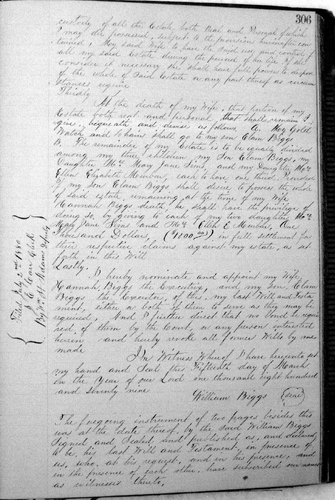 306
custody of all the Estate both Real and Personal of which
I may die possessed, subject to the provisions hereinafter con-
tained, My said Wife to have the said use, and control of
all my said Estate during the period of her life. If she
consider it necessary she shall have full power to dispose
of the whole of said Estate or any part thereof as circum-
stances require
Thirdly
At the death of my Wife, that portion of my
Estate both real and personal that shall remain I
give, bequeath and devise as follows A. My Gold
Watch and Chain shall go to my son Elam Biggs,
B. The remainder of my Estate is to be equally divided
among my three children, My Son Elam Biggs, my
Daughter Mrs Mary Jane and my Daughter Mrs
Ellen Elizabeth each to have one third. Provided
if my Son Elam Biggs shall desire to possess the whole
of said estate remaining at the time of my Wife
Hannah Biggs death, he shall have the privilege of
doing so, by giving to each of my two daughters Mrs
Mary Jane and Mrs Ellen E. One
Thousand Dollars, in full settlement for
their respective claims against my estate, as set
forth in this Will
Lastly.
I hereby nominate and appoint my Wife
Hannah Biggs the Executrix, and my Son Elam
Biggs the Executor, of this, my Last Will and Testa-
ment, either or both of them to serve as they may be
required, And I further direct that no Bond be requi-
red, of them by the Court, or any person interested
herein and hereby revoke all former Wills by me
made
In Witness Whereof I have hereunto set
my hand and Seal this Fifteenth day of March
in the Year of our Lord one thousand eight hundred
and Seventy nine
William Biggs (Seal)
The foregoing instrument of two pages besides this
was at the date thereof, by the said William Biggs
Signed and Sealed and published as, and declared
to be, his Last Will and Testament, in presence of
us, who, at his request, and in his presence, and
in the presence of each other, have subscribed our names
as witnesses thereto,
Filed July 1880
Clerk
By Deputy